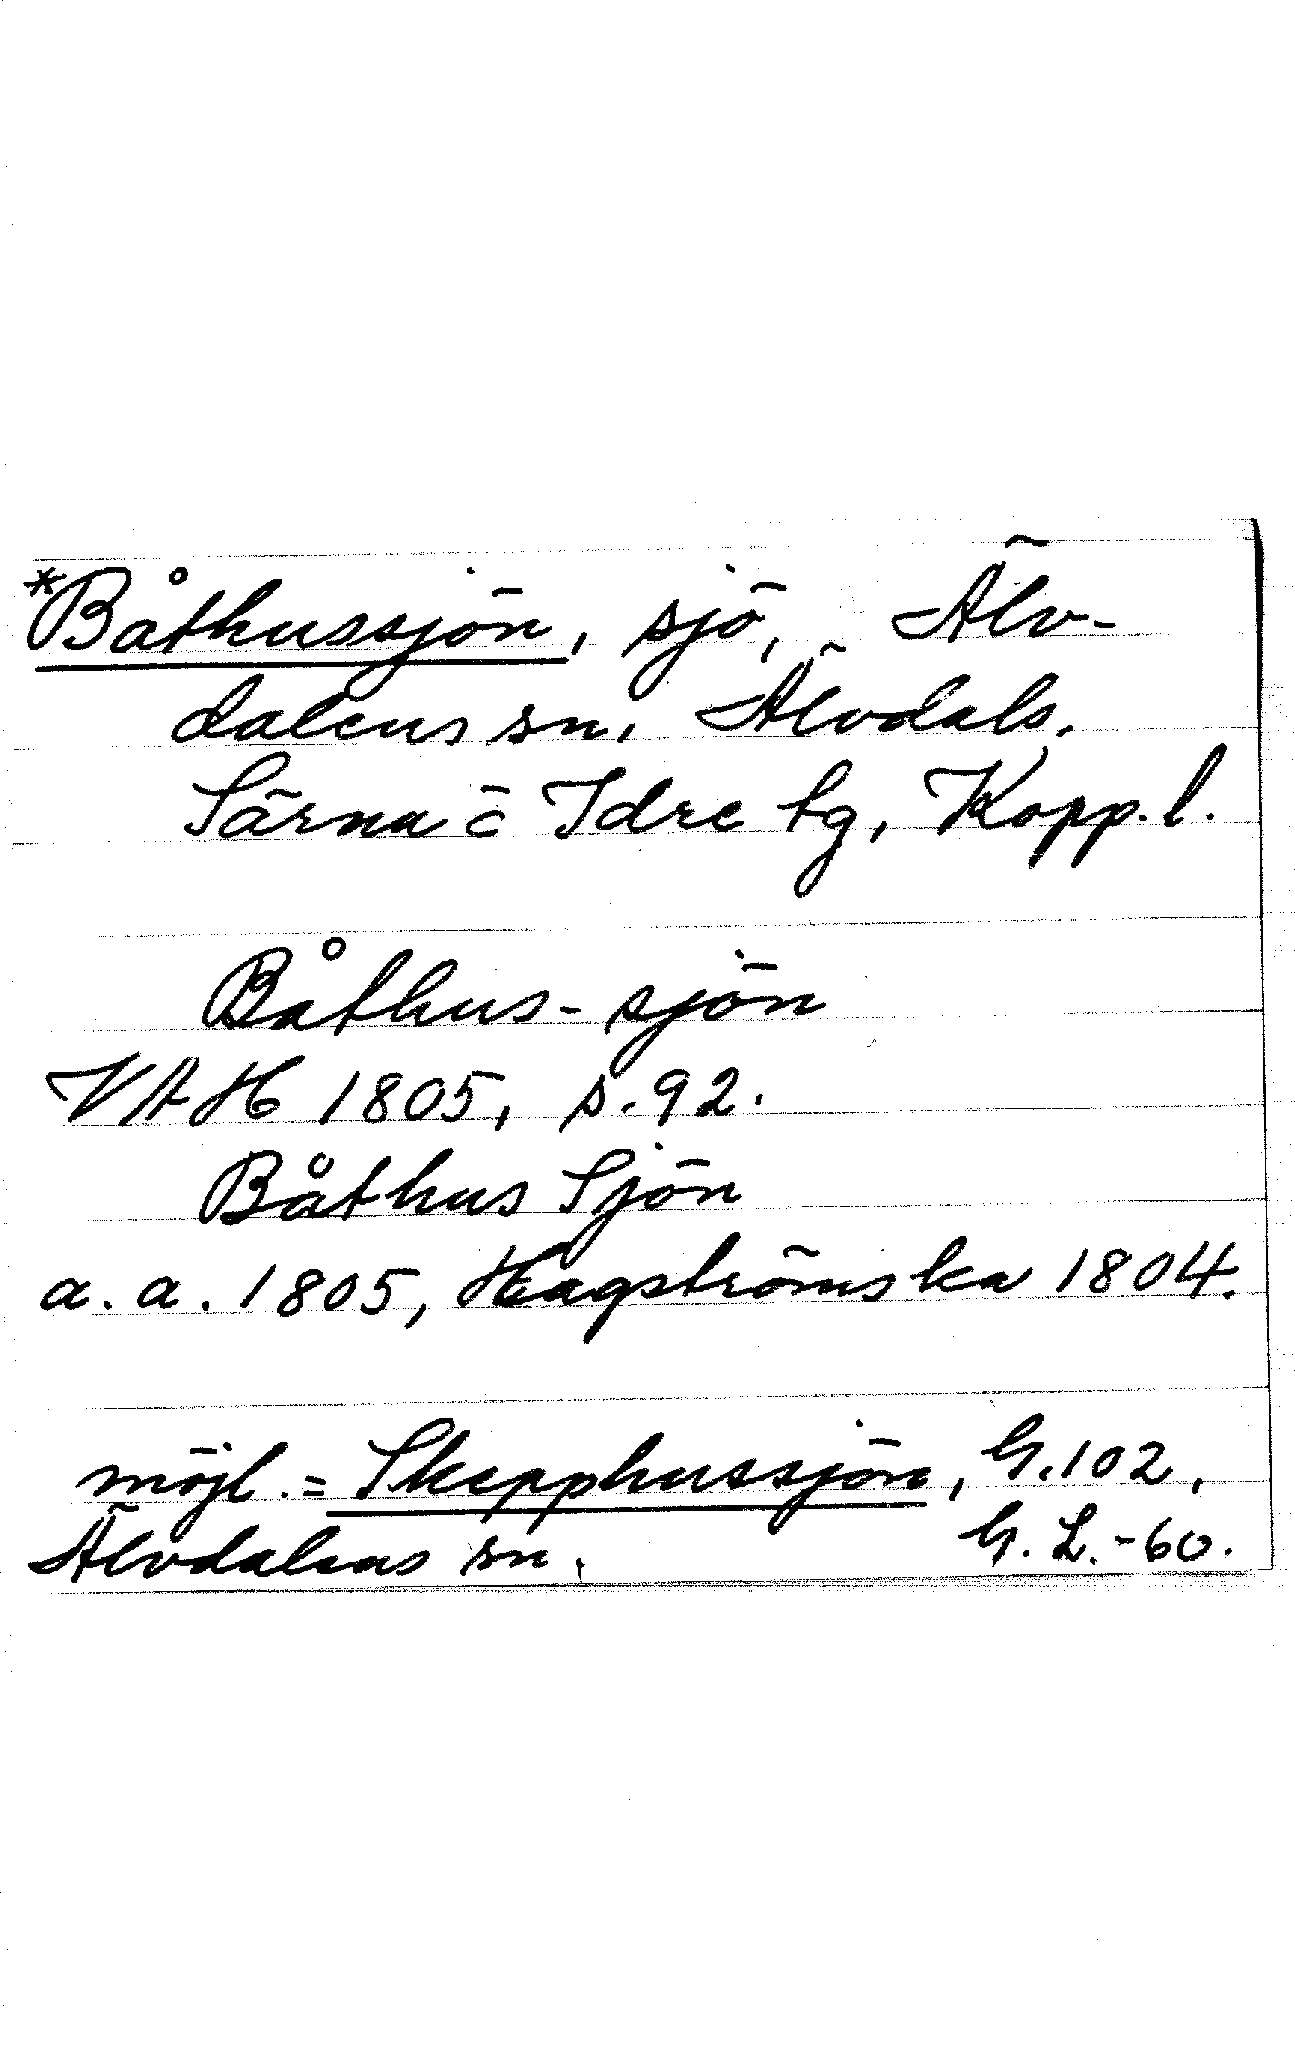 *Båthussjön, sjö, Älv-
dalens sn, Älvdals,
Särna o Idre tg, Kopp. l.
Båthus-sjön
VAH 1805, s. 92.
Båthus Sjön
a. a. 1805, Hagströmska 1804.
möjl. = Skepphussjön, G. 102,
Älvdalens sn.
G. L. -60.